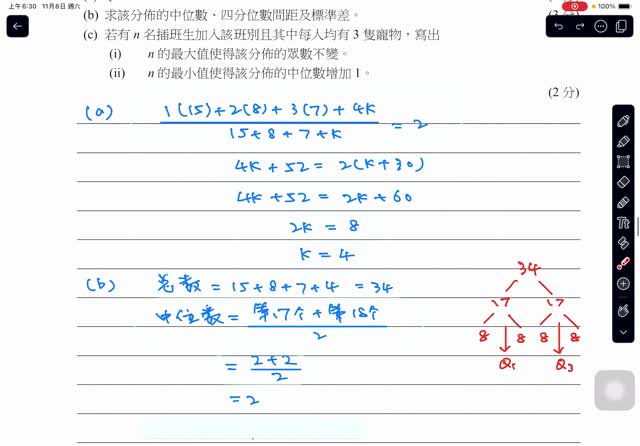 上午6:30 11月8日 週六
100%
(b) 求該分佈的中位數、四分位數間距及標準差。
(c) 若有 n 名插班生加入該班別且其中每人均有 3 隻寵物,寫出
(i) n 的最大值使得該分佈的眾數不變。
(ii) n 的最小值使得該分佈的中位數增加 1。
(2 分)
(a) 1(15)+2(8)+3(7)+4k / 15+8+7+k = 2
4k+52 = 2(k+30)
4k+52 = 2k+60
2k = 8
k = 4
(b) 总数 = 15+8+7+4 = 34
中位数 = 第17个+第18个 / 2
= 2+2 / 2
= 2
34
17 17
8 8 8 8
Q₁ Q₃